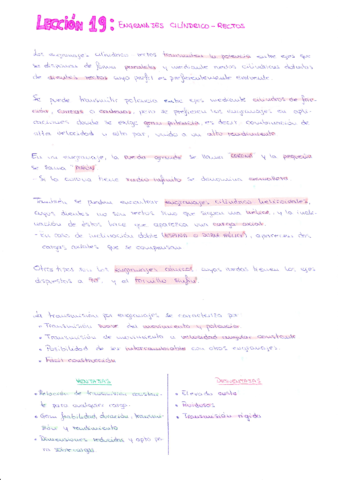 LECCIÓN 19: ENGRANAJES CILÍNDRICO-RECTOS
Los engranajes cilíndrico rectos transmiten la potencia entre ejes que
se disponen de forma paralela y mediante ruedas cilíndricas dotadas
de dientes rectos cuyo perfil es perfectamente
Se puede transmitir potencia entre ejes mediante
correas o cadenas, pero se prefieren los engranajes en apli-
caciones donde se exige gran potencia es decir, combinación de
alta velocidad y alto par, unido a un alto rendimiento
En un engranaje, la rueda grande se llama y la pequeña
se llama
- Si la corona tiene radio infinito se denomina cremallera
También se pueden encontrar engranajes cilíndrico helicoidales,
cuyos dientes no son rectos sino que siguen una hélice, y la incli-
nación de éstos hace que aparezca una carga axial
- En caso de inclinación doble aparecen dos
cargas axiales que se compensan
Otros tipos son los engranajes cónicos, cuyas ruedas tienen los ejes
dispuestos a y el tornillo sinfín
La transmisión por engranajes se caracteriza por:
• Transmisión de movimiento y potencia
• Transmisión de movimiento a velocidad angular constante
• Posibilidad de ser con otros engranajes
• Fácil construcción
VENTAJAS
• Relación de transmisión constan-
te para cualquier carga
• Gran fiabilidad, duración,
y rendimiento
• Dimensiones reducidas y apto pa-
ra sobrecarga
DESVENTAJAS
• Elevado coste
• Ruidosos
• Transmisión rígida